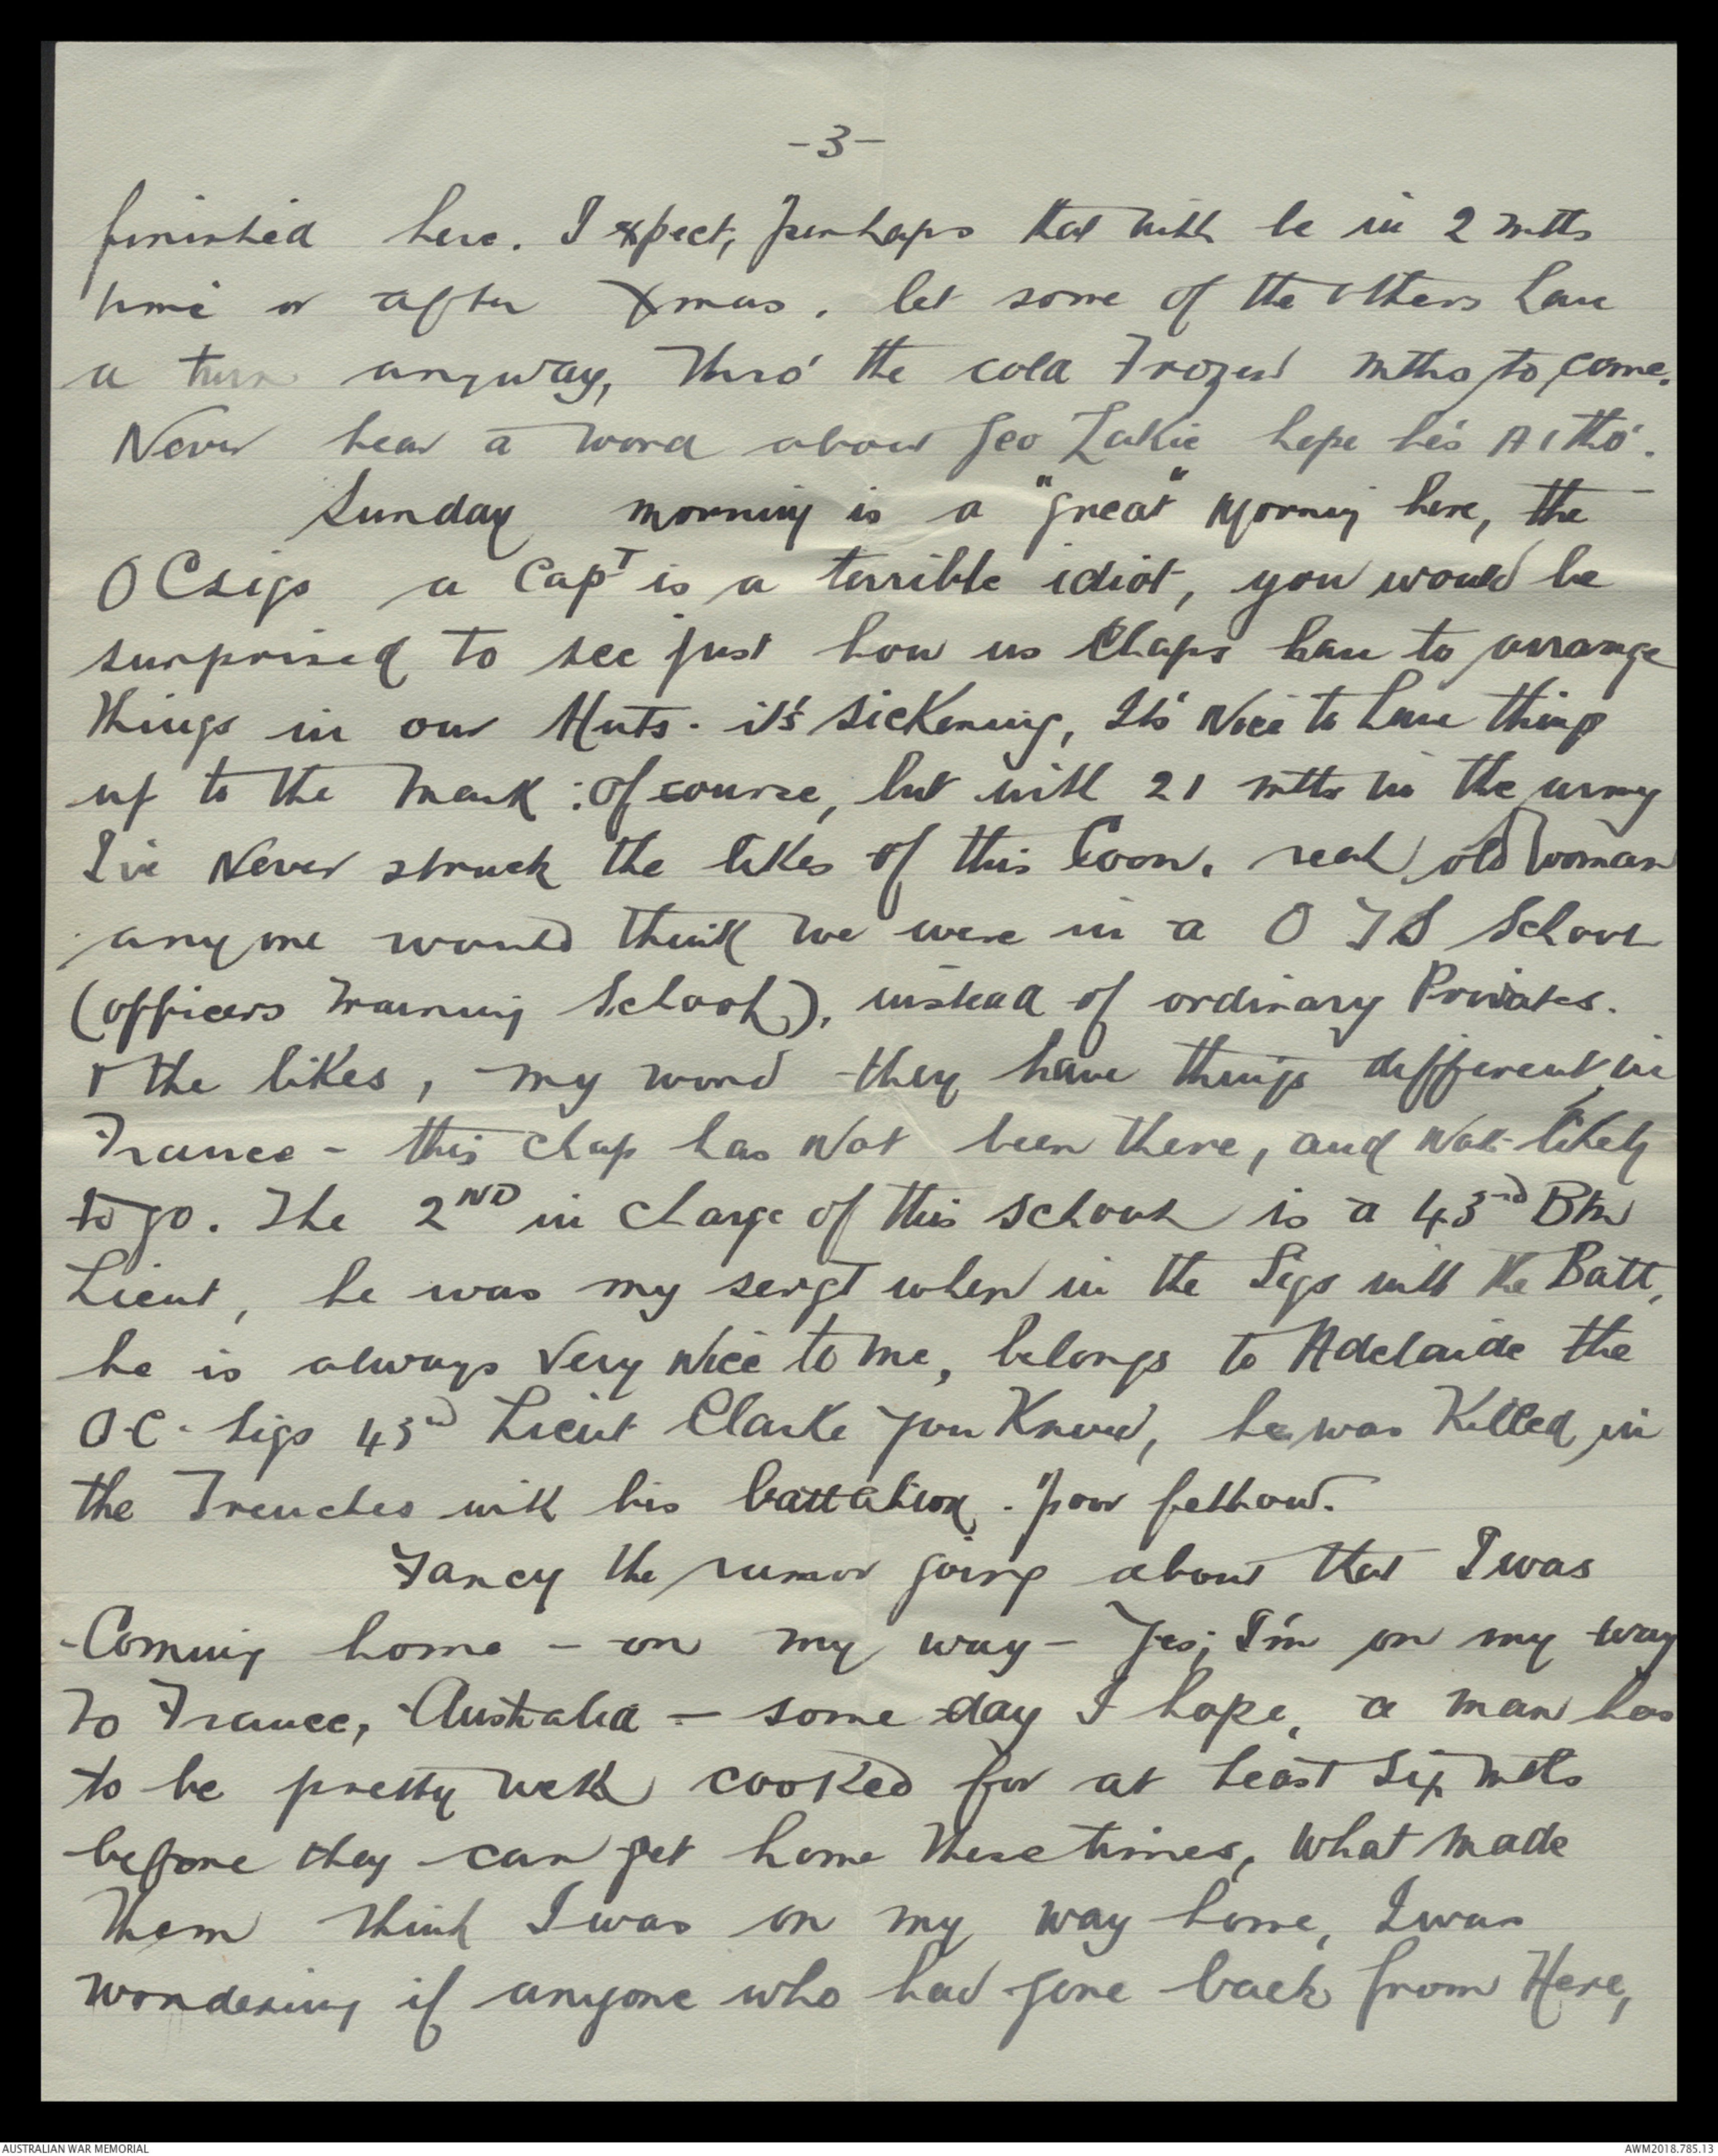 -3-
finished here. I expect, perhaps that will be in 2 mths
time or after Xmas, let some of the others have
a turn anyway, thro' the cold Frozen mths to come.
Never hear a word about Geo Lakie hope he's A1 tho'.
Sunday morning is a "great" Morning here, the
O C sigs a Capt is a terrible idiot, you would be
surprised to see just how us Chaps have to arrange
things in our Huts. it's sickening, Its Nice to have things
up to the mark: of course, but with 21 mths in the army
I've Never struck the likes of this Coon. real old woman
anyone would think we were in a O T S School
(officers Training School), instead of ordinary Privates.
& the likes, my word they have things different in
France - this chap has Not been there, and Not likely
to go. The 2ND in charge of this school is a 43rd Btn
Lieut, he was my sergt when in the Sigs with the Batt,
he is always very Nice to me, belongs to Adelaide the
O.C. Sigs 43rd Lieut Clarke you Knew, he was Killed in
the Trenches with his battalion. poor fellow.
Fancy the rumor going about that I was
Coming home - on my way - Yes; I'm on my way
to France, Australia - some day I hope, a man has
to be pretty well cooked for at least six mths
before they can get home these times, What made
them think I was on my way home, I was
wondering if anyone who had gone back from Here,
AUSTRALIAN WAR MEMORIAL
AWM2018.785.13